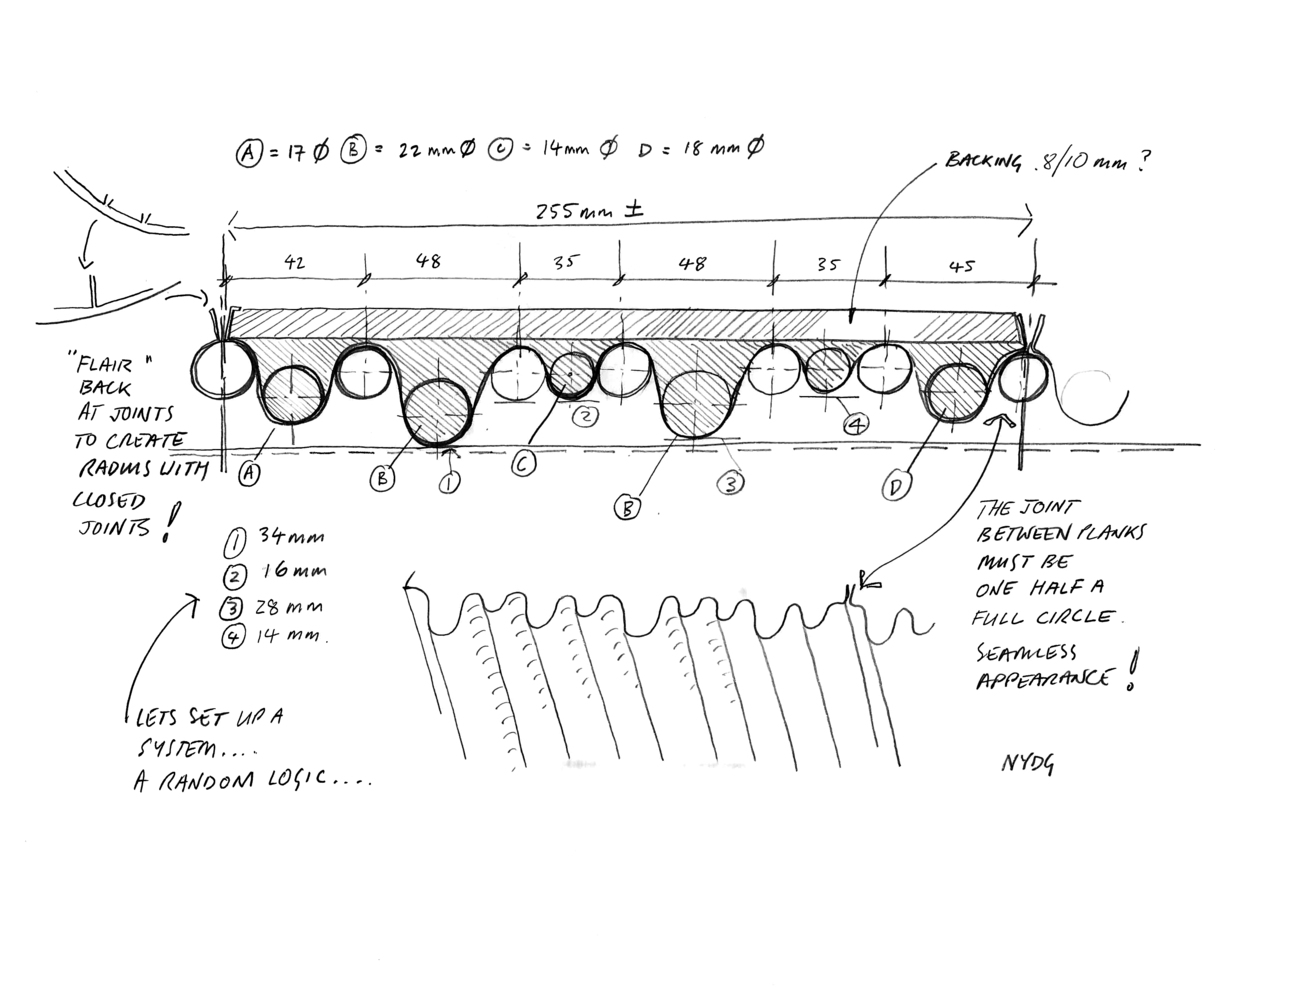 Ⓐ = 17 Ø Ⓑ = 22 mm Ø Ⓒ = 14mm Ø D = 18 mm Ø
BACKING . 8/10 mm ?
255mm ±
42 48 35 48 35 45
"FLAIR"
BACK
AT JOINTS
TO CREATE
RADIUS WITH
CLOSED
JOINTS !
Ⓐ Ⓑ ① Ⓒ ② Ⓑ ③ ④ Ⓓ
① 34mm
② 16mm
③ 28mm
④ 14mm.
LETS SET UP A
SYSTEM....
A RANDOM LOGIC....
THE JOINT
BETWEEN PLANKS
MUST BE
ONE HALF A
FULL CIRCLE.
SEAMLESS
APPEARANCE !
NYDG